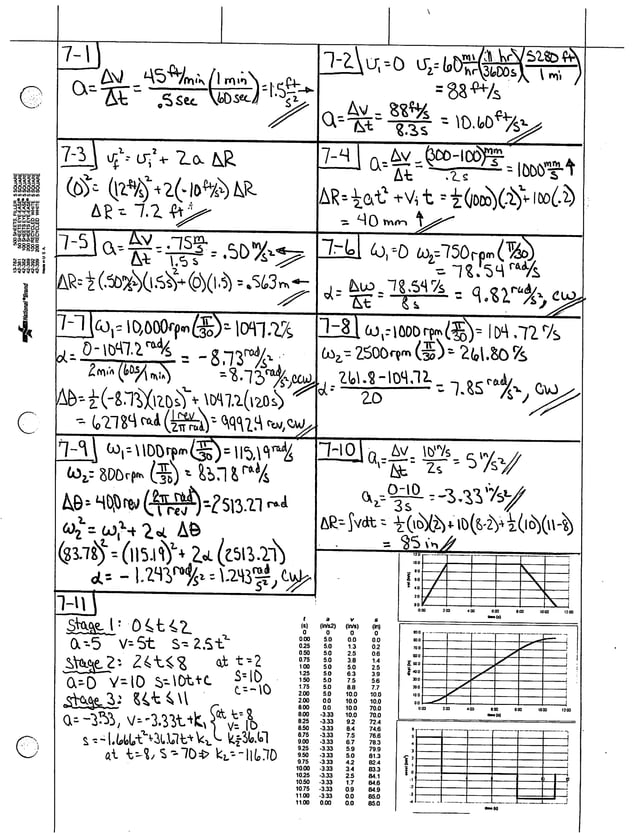 7-1
a = Δv/Δt = 45 ft/min/.5 sec (1 min/60 sec) = 1.5 ft/s² →
7-2 v₁=0 v₂=60 mi/hr (1 hr/3600s)(5280 ft/1 mi)
= 88 ft/s
a = Δv/Δt = 88 ft/s/8.3s = 10.60 ft/s²
7-3 v_f² = v_i² + 2a ΔR
(0)² = (12 ft/s)² + 2(-10 ft/s²) ΔR
ΔR = 7.2 ft
7-4 a = Δv/Δt = (300-100) mm/s/.2s = 1000 mm/s² ↑
ΔR = ½at² + v_i t = ½(1000)(.2)² + 100(.2)
= 40 mm ↑
7-5 a = Δv/Δt = .75 m/s/1.5 s = .50 m/s² ←
ΔR = ½(.50 m/s²)(1.5s)² + (0)(1.5) = .563m ←
7-6 ω₁=0 ω₂=750rpm (π/30)
= 78.54 rad/s
α = Δω/Δt = 78.54 r/s/8s = 9.82 rad/s², cw
7-7 ω₁=10,000rpm (π/30) = 1047.2 r/s
α = 0-1047.2 rad/s/2min (60s/1min) = -8.73 rad/s²
= 8.73 rad/s², ccw
Δθ = ½(-8.73)(120s)² + 1047.2(120s)
= 62784 rad (1 rev/2π rad) = 9992.4 rev, cw
7-8 ω₁=1000rpm (π/30) = 104.72 r/s
ω₂ = 2500rpm (π/30) = 261.80 r/s
α = 261.8-104.72/20 = 7.85 rad/s², cw
7-9 ω₁=1100rpm (π/30) = 115.19 rad/s
ω₂ = 800rpm (π/30) = 83.78 rad/s
Δθ = 400rev (2π rad/1 rev) = 2513.27 rad
ω₂² = ω₁² + 2α Δθ
(83.78)² = (115.19)² + 2α (2513.27)
α = -1.243 rad/s² = 1.243 rad/s², cw
7-10 a₁ = Δv/Δt = 10 in/s/2s = 5 in/s²
a₂ = 0-10/3s = -3.33 in/s²
ΔR = ∫vdt = ½(10)(2) + 10(8-2) + ½(10)(11-8)
= 85 in
7-11
Stage 1: 0≤t≤2
a=5 v=5t s=2.5t²
Stage 2: 2≤t≤8 at t=2
a=0 v=10 s=10t+c s=10
c=-10
Stage 3: 8≤t≤11
a=-3.33, v=-3.33t+k₁ at t=8
v=10
s=-1.666t²+36.67t+k₂ k₁=36.67
at t=8, s=70 ⇒ k₂=-116.70
t a v s
(s) (in/s2) (in/s) (in)
0 0 0 0
0.00 5.0 0.0 0.0
0.25 5.0 1.3 0.2
0.50 5.0 2.5 0.6
0.75 5.0 3.8 1.4
1.00 5.0 5.0 2.5
1.25 5.0 6.3 3.9
1.50 5.0 7.5 5.6
1.75 5.0 8.8 7.7
2.00 5.0 10.0 10.0
2.00 0.0 10.0 10.0
8.00 0.0 10.0 70.0
8.00 -3.33 10.0 70.0
8.25 -3.33 9.2 72.4
8.50 -3.33 8.4 74.6
8.75 -3.33 7.5 76.6
9.00 -3.33 6.7 78.3
9.25 -3.33 5.9 79.9
9.50 -3.33 5.0 81.3
9.75 -3.33 4.2 82.4
10.00 -3.33 3.4 83.3
10.25 -3.33 2.5 84.1
10.50 -3.33 1.7 84.6
10.75 -3.33 0.9 84.9
11.00 -3.33 0.0 85.0
11.00 0.00 0.0 85.0